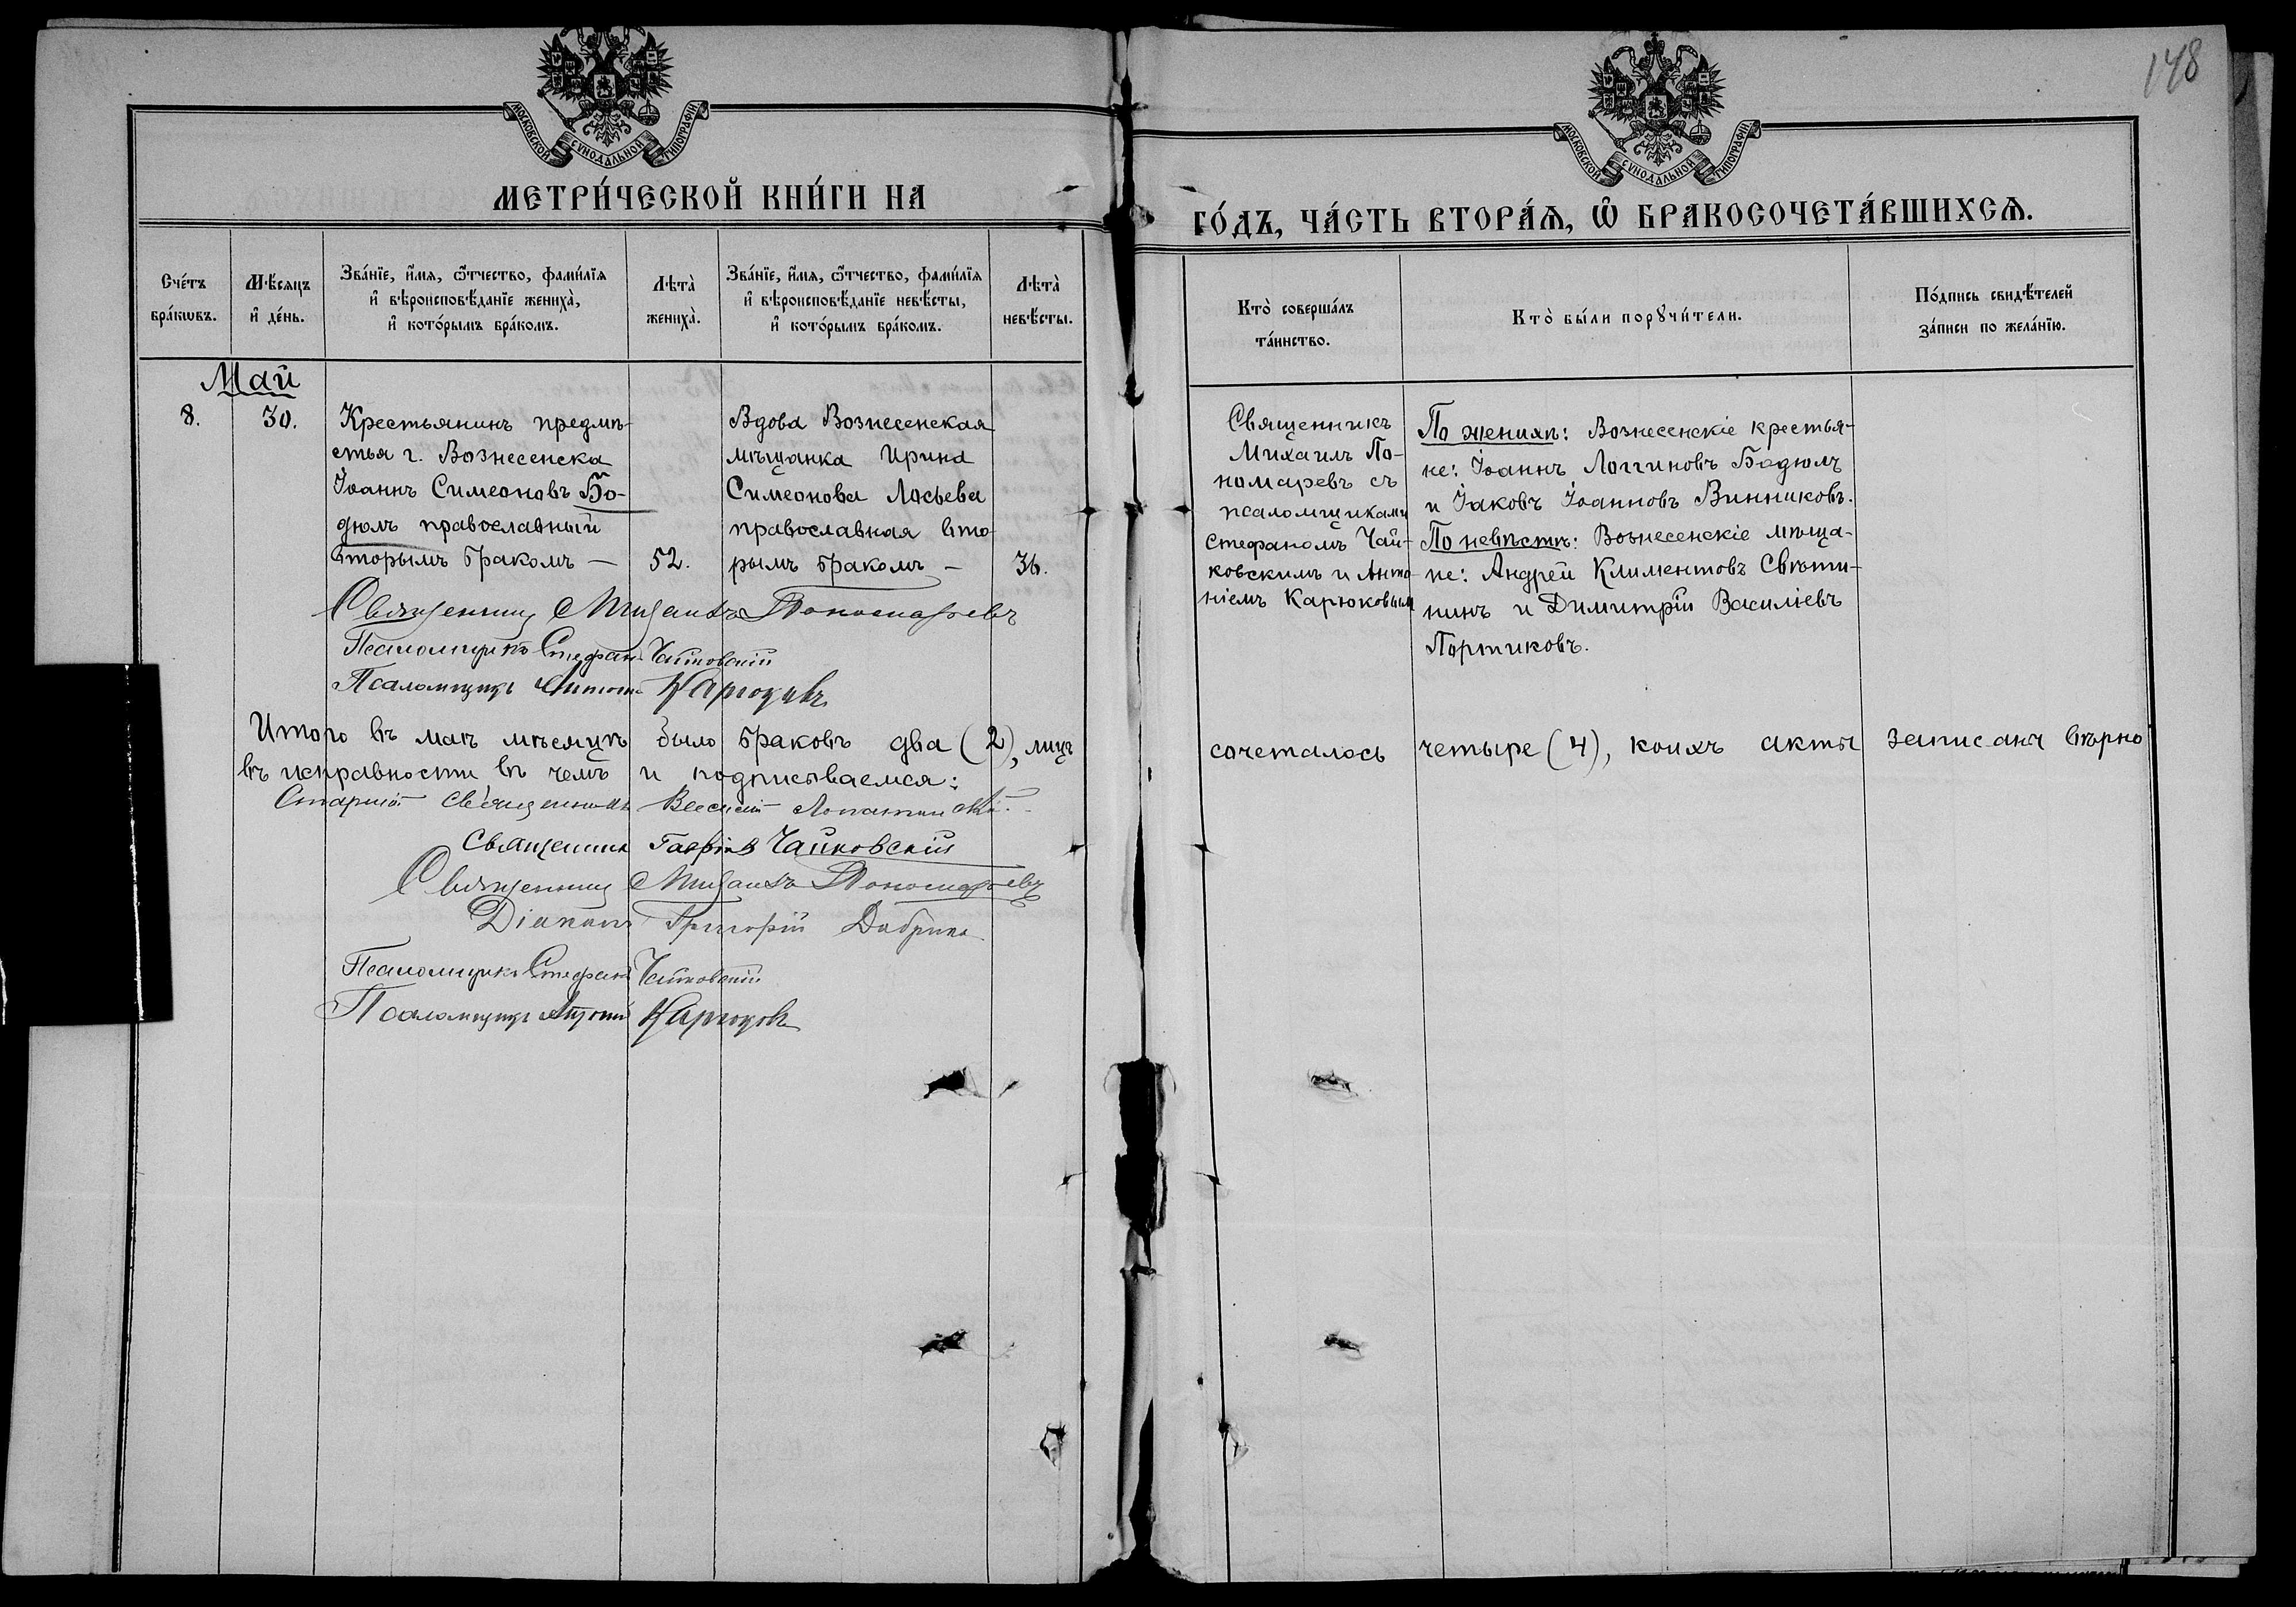 148
МОСКОВСКОЙ СѴНОДАЛЬНОЙ ТИПОГРАФІИ
МОСКОВСКОЙ СѴНОДАЛЬНОЙ ТИПОГРАФІИ
МЕТРИ́ЧЕСКОЙ КНИ́ГИ НА
ГО́ДЪ, ЧА́СТЬ ВТОРА́Ѧ, Ѽ БРАКОСОЧЕТА́ВШИХСѦ.
Сче́тъ
бра́кѡвъ.
Мѣ́сяцъ
и҆ де́нь.
Зва́нїе, и҆́мя, ѻ҆́тчество, фами́лїя
и҆ вѣроисповѣ́данїе жениха̀,
и҆ кото́рымъ бра́комъ.
Лѣта̀
жениха̀.
Зва́нїе, и҆́мя, ѻ҆́тчество, фами́лїя
и҆ вѣроисповѣ́данїе невѣ́сты,
и҆ кото́рымъ бра́комъ.
Лѣта̀
невѣ́сты.
Кто̀ соверша́лъ
та́инство.
Кто̀ бы́ли порꙋчи́тели.
По́дпись свидѣ́телей
за́писи по жела́нїю.
Май
8.
30.
Крестьянинъ предмѣ-
стья г. Вознесенска
Іоаннъ Симеоновъ Бо-
дюлъ православный
вторымъ бракомъ —
52.
Вдова Вознесенская
мѣщанка Ирина
Симеонова Лосьева
православная вто-
рымъ бракомъ —
36.
Священникъ
Михаилъ По-
номаревъ съ
псаломщиками
Стефаномъ Чай-
ковскимъ и Анто-
ніемъ Карюковым
По женихѣ: Вознесенскіе крестья-
не: Іоаннъ Логгиновъ Бодюлъ
и Іаковъ Іоанновъ Винниковъ.
По невѣстѣ: Вознесенскіе мѣща-
не: Андрей Климентовъ Свѣти-
нинъ и Димитрій Василіевъ
Портиковъ.
Священникъ Михаилъ Пономаревъ
Псаломщикъ Стефанъ Чайковскій
Псаломщикъ Антоній Карюковъ
Итого въ маѣ мѣсяцѣ было браковъ два (2), лицъ сочеталось четыре (4), коихъ акты записаны вѣрно
въ исправности въ чемъ и подписываемся:
Старшій священникъ Василій Лопатинскій
Священникъ Гавріилъ Чайковскій
Священникъ Михаилъ Пономаревъ
Діаконъ Григорій
Псаломщикъ Стефанъ Чайковскій
Псаломщикъ Антоній Карюковъ